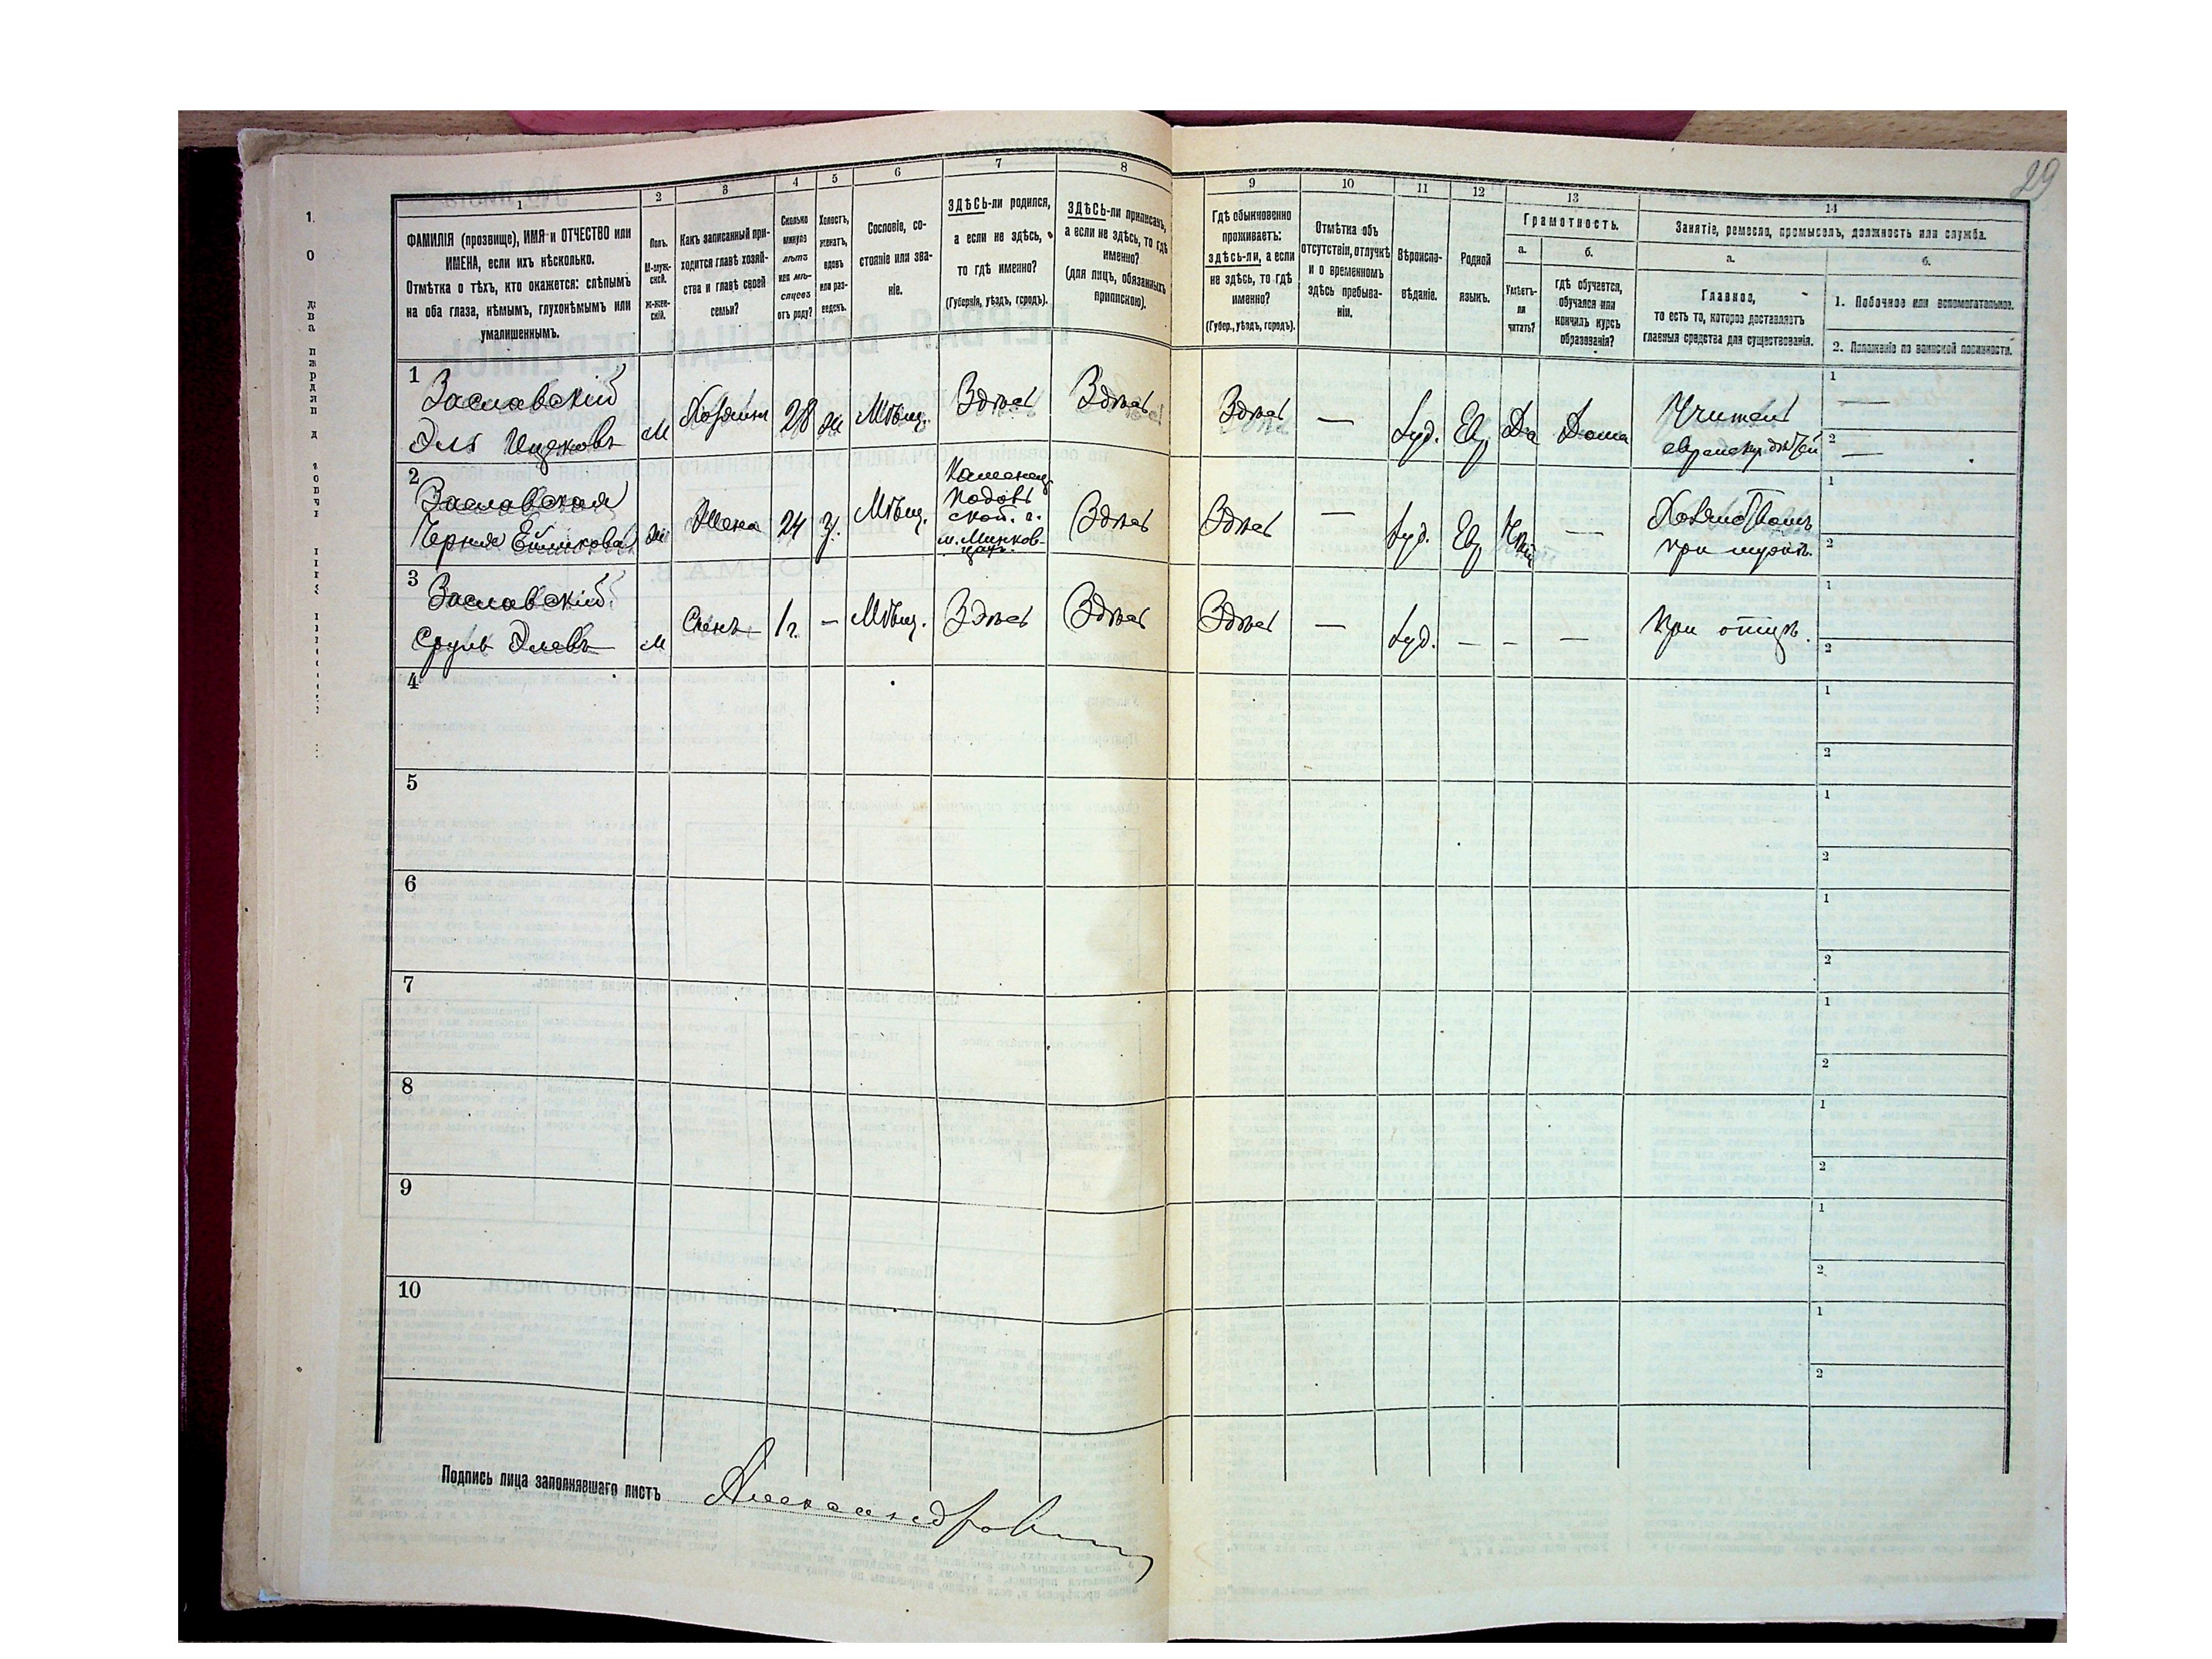 29
1 2 3 4 5 6 7 8 9 10 11 12 13 14
ФАМИЛІЯ (прозвище), ИМЯ и ОТЧЕСТВО или
ИМЕНА, если ихъ нѣсколько.
Отмѣтка о тѣхъ, кто окажется: слѣпымъ
на оба глаза, нѣмымъ, глухонѣмымъ или
умалишеннымъ.
Полъ.
М-муж-
ской.
ж-жен-
скій.
Какъ записанный при-
ходится главѣ хозяй-
ства и главѣ своей
семьи?
Сколько
минуло
лѣтъ
или мѣ-
сяцевъ
отъ роду?
Холостъ,
женатъ,
вдовъ
или раз-
веденъ.
Сословіе, со-
стояніе или зва-
ніе.
ЗДѢСЬ-ли родился,
а если не здѣсь,
то гдѣ именно?
(Губернія, уѣздъ, городъ).
ЗДѢСЬ-ли приписанъ,
а если не здѣсь, то гдѣ
именно?
(для лицъ, обязанныхъ
припискою).
Гдѣ обыкновенно
проживаетъ:
здѣсь-ли, а если
не здѣсь, то гдѣ
именно?
(Губер., уѣздъ, городъ).
Отмѣтка объ
отсутствіи, отлучкѣ
и о временномъ
здѣсь пребыва-
ніи.
Вѣроиспо-
вѣданіе.
Родной
языкъ.
Грамотность.
а.
Умѣетъ-
ли
читать?
б.
гдѣ обучается,
обучался или
кончилъ курсъ
образованія?
Занятіе, ремесло, промыселъ, должность или служба.
а.
Главное,
то есть то, которое доставляетъ
главныя средства для существованія.
б.
1. Побочное или вспомогательное.
2. Положеніе по воинской повинности.
1
Заславскій
Эля Ицковъ
М
Хозяинъ
28
Ж
Мѣщ.
Здѣсь
Здѣсь
Здѣсь
—
Іуд.
Ев.
Да
Дома
Учитель
1 —
2 —
2
Заславская
Черня
Ж
Жена
24
З.
Мѣщ.
Каменец
Подоль
ской. г.
м. Миньков
цахъ.
Здѣсь
Здѣсь
—
Іуд.
Ев.
—
при мужѣ.
1
2
3
Заславскій
Сруль Элевъ
М
Сынъ
1 г.
—
Мѣщ.
Здѣсь
Здѣсь
Здѣсь
—
Іуд.
—
—
—
При отцѣ.
1
2
4
1
2
5
1
2
6
1
2
7
1
2
8
1
2
9
1
2
10
1
2
Подпись лица заполнявшаго листъ